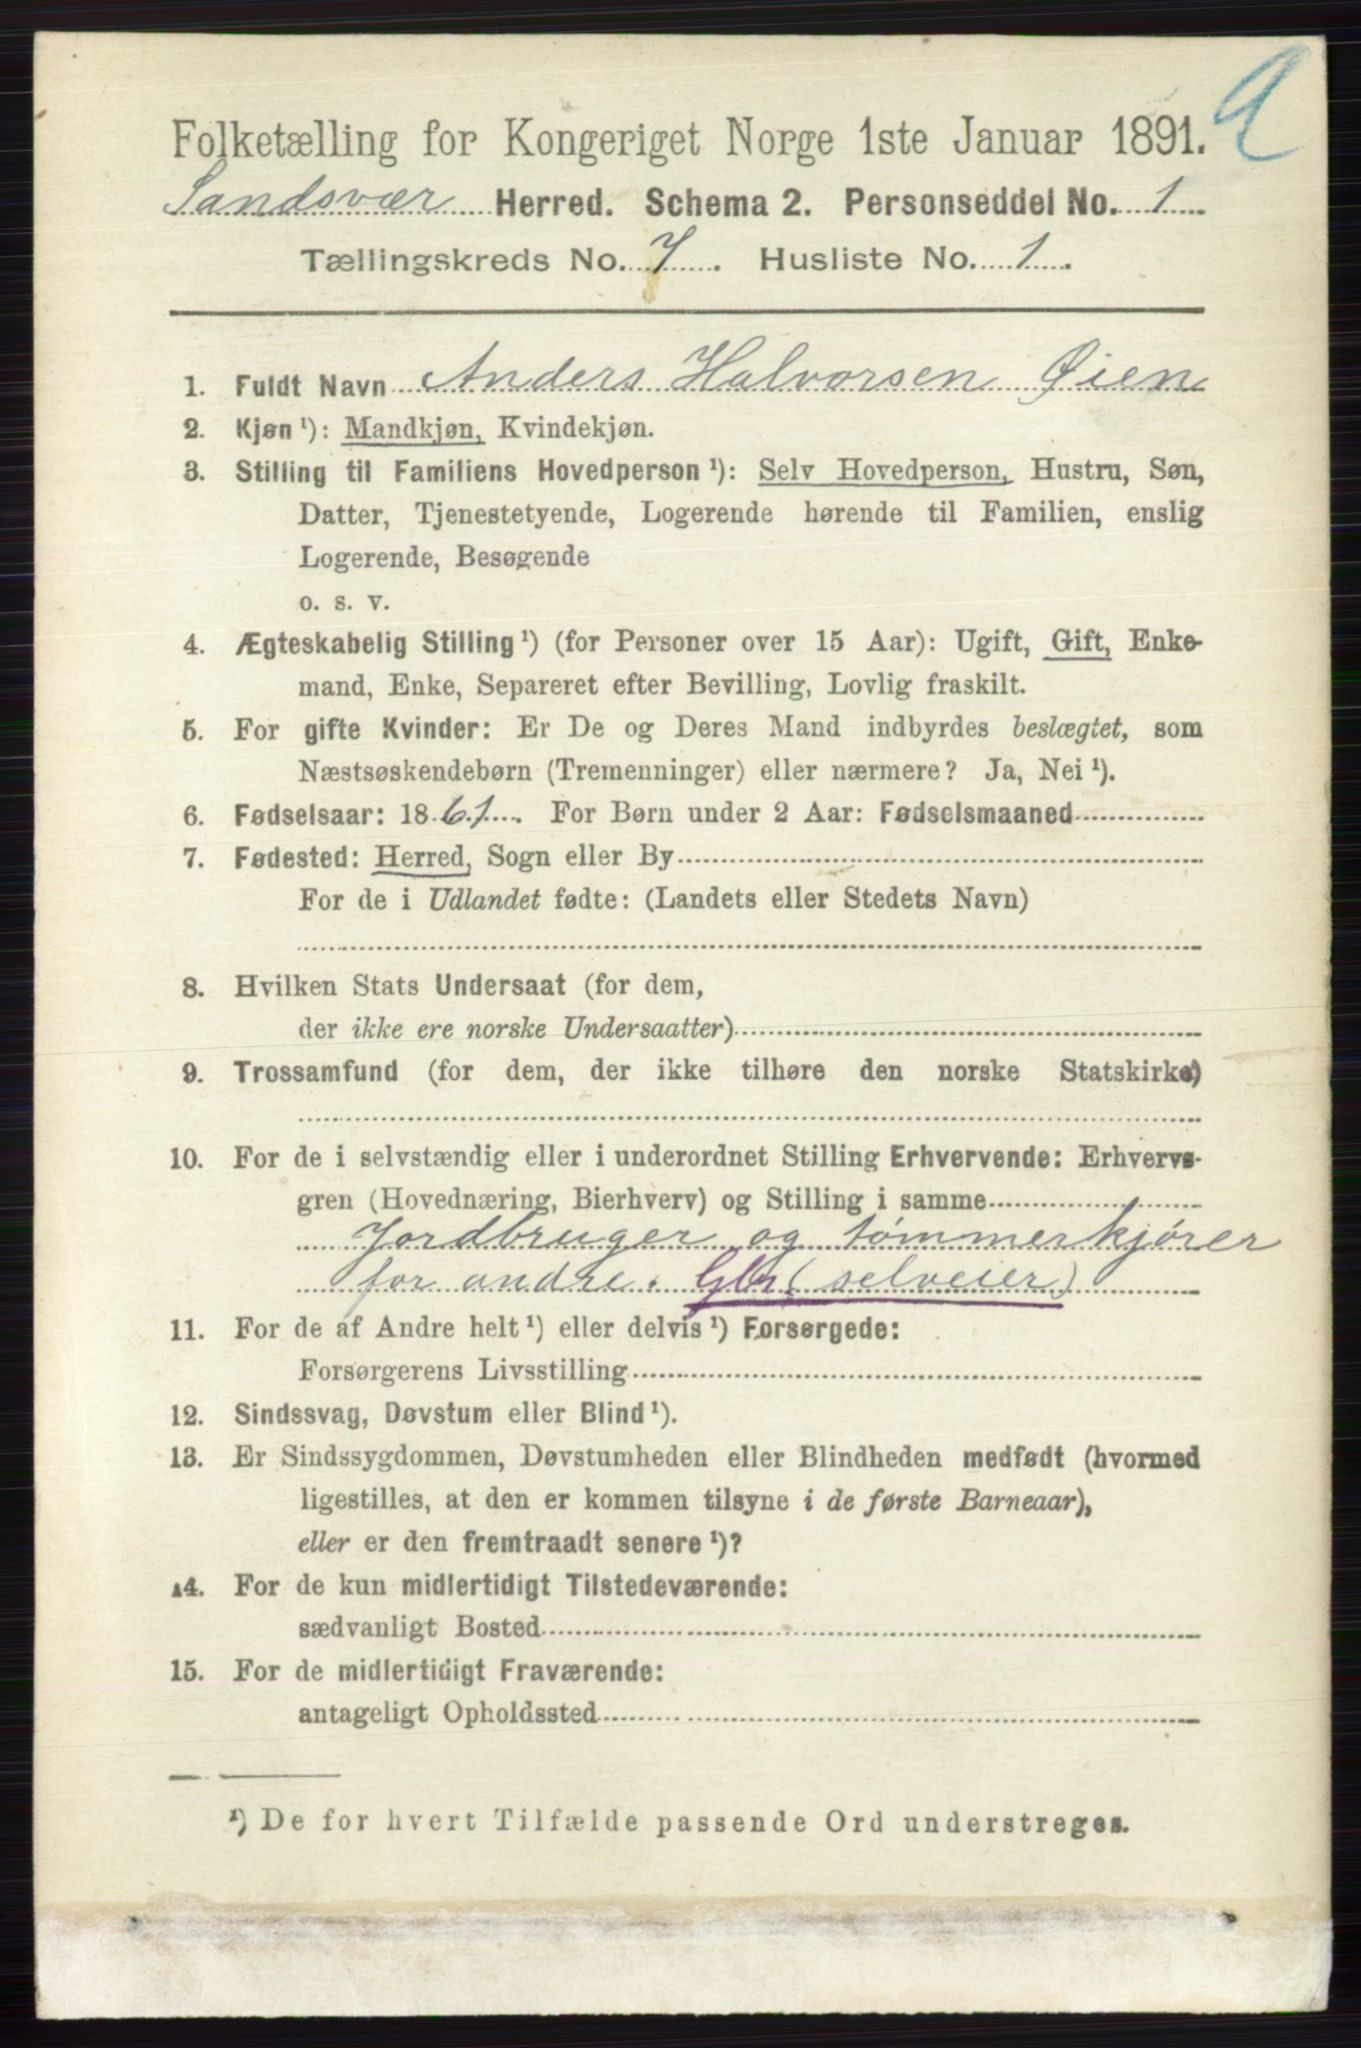 9
Folketælling for Kongeriget Norge 1ste Januar 1891.
Sandsvær Herred. Schema 2. Personseddel No. 1
Tællingskreds No. 7. Husliste No. 1.
1. Fuldt Navn Anders Halvorsen Øien
2. Kjøn ¹): Mandkjøn, Kvindekjøn.
3. Stilling til Familiens Hovedperson ¹): Selv Hovedperson, Hustru, Søn,
Datter, Tjenestetyende, Logerende hørende til Familien, enslig
Logerende, Besøgende
o. s. v.
4. Ægteskabelig Stilling ¹) (for Personer over 15 Aar): Ugift, Gift, Enke-
mand, Enke, Separeret efter Bevilling, Lovlig fraskilt.
5. For gifte Kvinder: Er De og Deres Mand indbyrdes beslægtet, som
Næstsøskendebørn (Tremenninger) eller nærmere? Ja, Nei ¹).
6. Fødselsaar: 1861. For Børn under 2 Aar: Fødselsmaaned
7. Fødested: Herred, Sogn eller By
For de i Udlandet fødte: (Landets eller Stedets Navn)
8. Hvilken Stats Undersaat (for dem,
der ikke ere norske Undersaatter)
9. Trossamfund (for dem, der ikke tilhøre den norske Statskirke)
10. For de i selvstændig eller i underordnet Stilling Erhvervende: Erhvervs-
gren (Hovednæring, Bierhverv) og Stilling i samme
Jordbruger og tømmerkjører
for andre. Gbr (selveier)
11. For de af Andre helt ¹) eller delvis ¹) Forsørgede:
Forsørgerens Livsstilling
12. Sindssvag, Døvstum eller Blind ¹).
13. Er Sindssygdommen, Døvstumheden eller Blindheden medfødt (hvormed
ligestilles, at den er kommen tilsyne i de første Barneaar),
eller er den fremtraadt senere ¹)?
14. For de kun midlertidigt Tilstedeværende:
sædvanligt Bosted
15. For de midlertidigt Fraværende:
antageligt Opholdssted
¹) De for hvert Tilfælde passende Ord understreges.